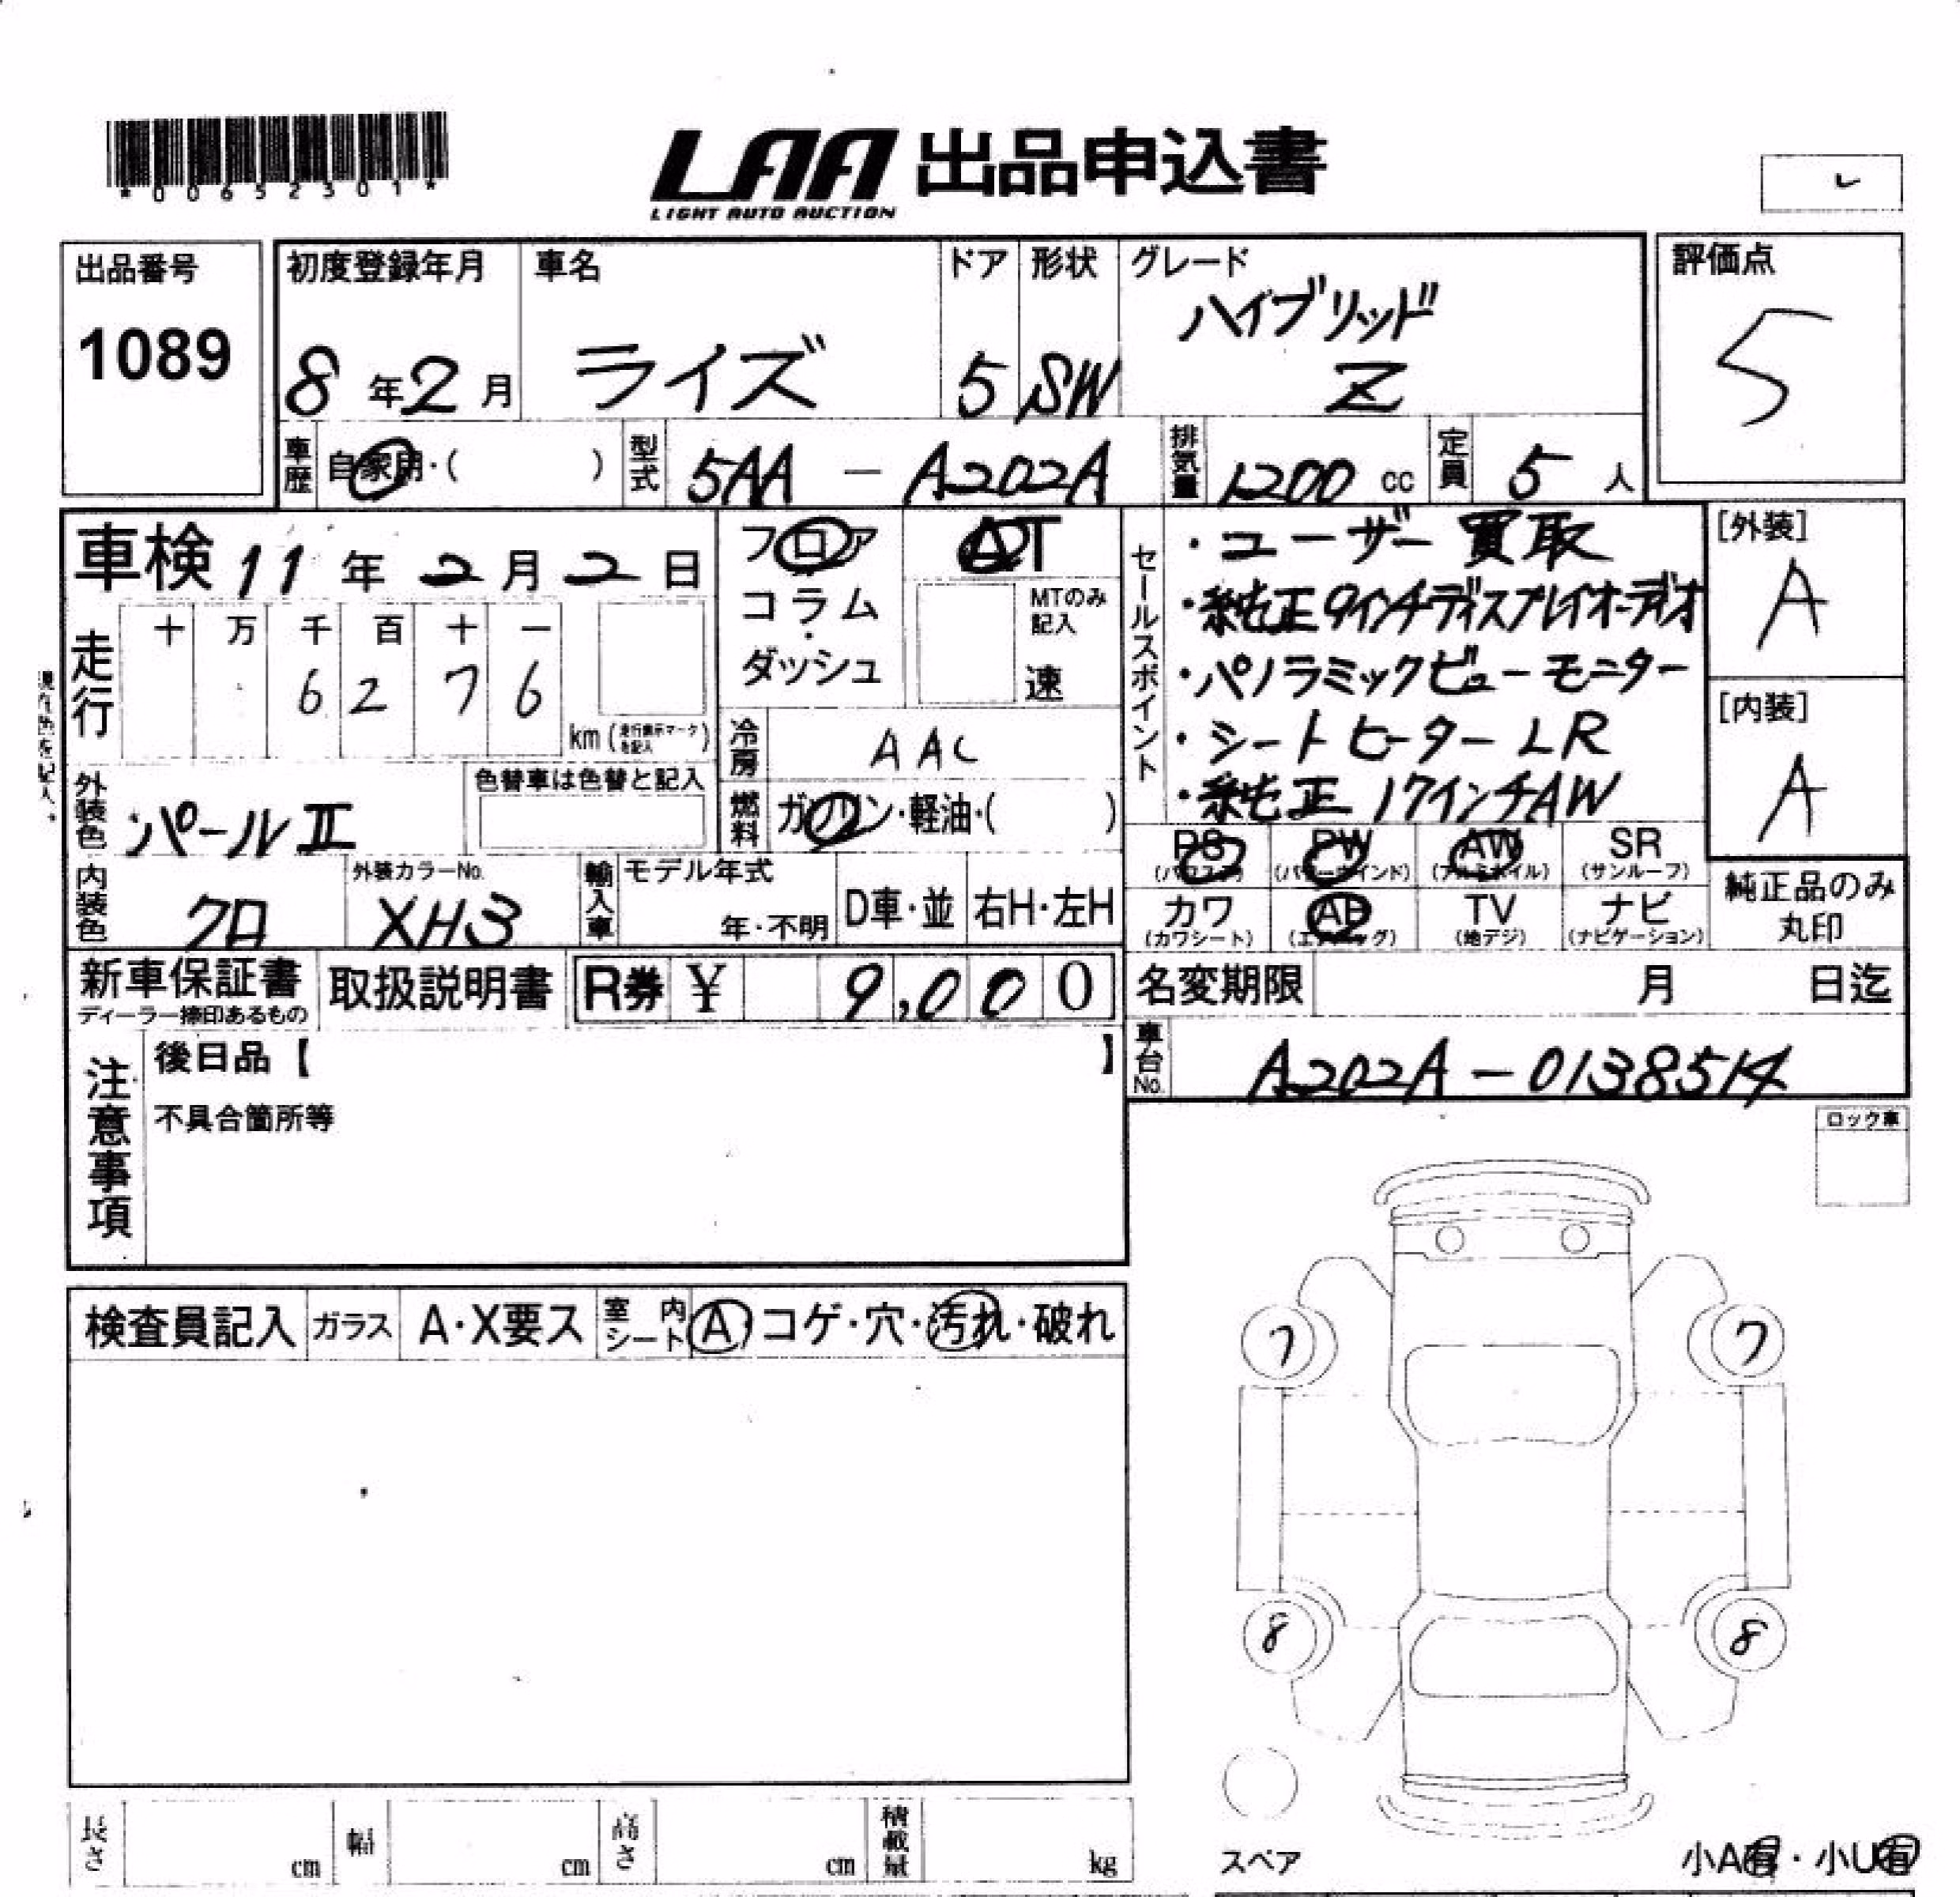 *00652301*
LAA 出品申込書
LIGHT AUTO AUCTION
出品番号
1089
初度登録年月
8年2月
車名
ライズ
ドア
5
形状
SW
グレード
ハイブリッド
Z
評価点
5
車歴
自家用・( )
型式
5AA - A202A
排気量
1200 cc
定員
5人
車検 11年2月2日
走行
十 万 千 百 十 一
6 2 7 6
km (走行表示マークを記入)
フロア
コラム
・
ダッシュ
AT
MTのみ記入
速
冷房
AAC
燃料
ガソリン・軽油・( )
セールスポイント
・ユーザー買取
・純正9インチディスプレイオーディオ
・パノラミックビューモニター
・シートヒーターLR
・純正17インチAW
[外装]
A
[内装]
A
外装色
パールⅡ
色替車は色替と記入
内装色
クロ
外装カラーNo.
XH3
輸入車
モデル年式
年・不明
D車・並
右H・左H
PS
(パワステ)
PW
(パワーウインド)
AW
(アルミホイル)
SR
(サンルーフ)
カワ
(カワシート)
AB
(エアバッグ)
TV
(地デジ)
ナビ
(ナビゲーション)
純正品のみ
丸印
新車保証書
ディーラー捺印あるもの
取扱説明書
R券 ¥ 9,000
名変期限 月 日迄
車台No.
A202A-0138514
注意事項
後日品【 】
不具合箇所等
ロック車
検査員記入
ガラス
A・X要ス
室内シート
A・コゲ・穴・汚れ・破れ
7
7
8
8
スペア
小A有・小U有
長さ cm
幅 cm
高さ cm
積載量 kg